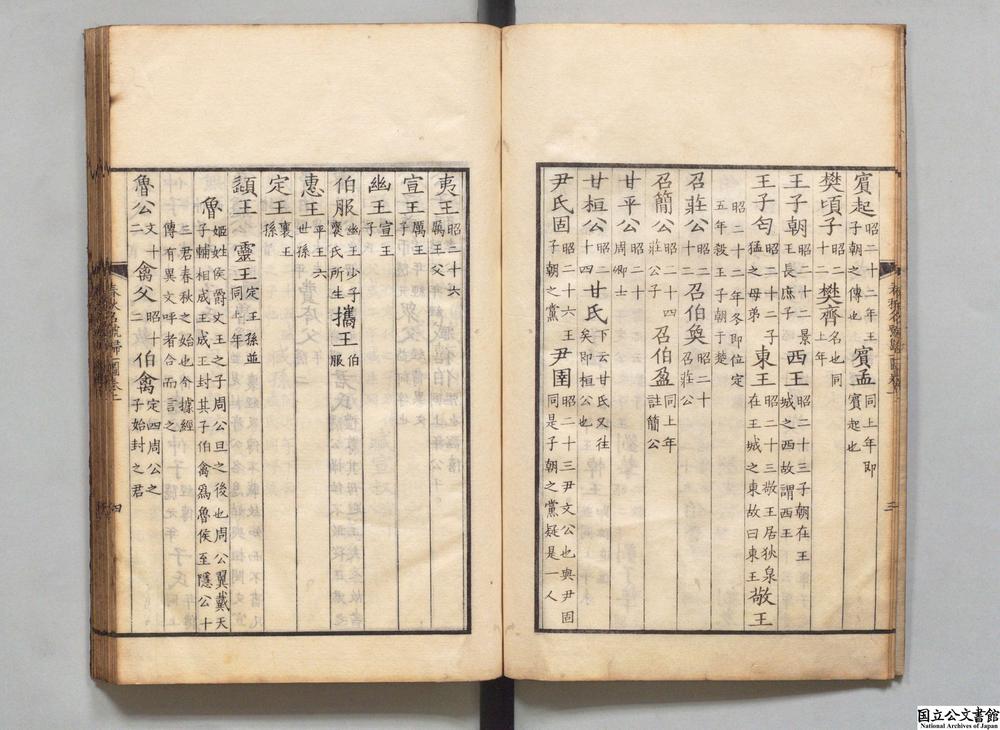 賔起昭二十二年王子朝之傅也賔孟同上年即賔起也
樊頃子昭二十二樊齊名也同上年
王子朝昭二十二景王長庶子西王昭二十三子朝在王城之西故謂西王
王子匄昭二十二子猛之母弟東王昭二十三敬王居狄泉在王城之東故曰東王敬王
昭二十二年冬即位定五年殺王子朝于楚
召莊公昭二十二召伯奐昭二十召莊公
召簡公昭二十四莊公子召伯盈同上年註簡公
甘平公昭二十周卿士
甘桓公昭二十四甘氏下云甘氏又往矣即桓公也
尹氏固昭二十六王子朝之黨尹圉昭二十三尹文公也與尹固同是子朝之黨疑是一人
三
夷王昭二十六厲王父
宣王厲王子
幽王宣王子
伯服幽王少子褒氏所生攜王伯服
惠王平王六世孫
定王襄王孫
頃王靈王定王孫並同上年
魯姬姓侯爵文王之子周公旦之後也周公翼戴天子輔相成王成王封其子伯禽爲魯侯至隱公十
三君春秋之始也今據經傳有異文呼者合而言之
魯公文十二禽父昭十二伯禽定四周公之子始封之君
春秋名號歸一圖卷上
四
国立公文書館
National Archives of Japan